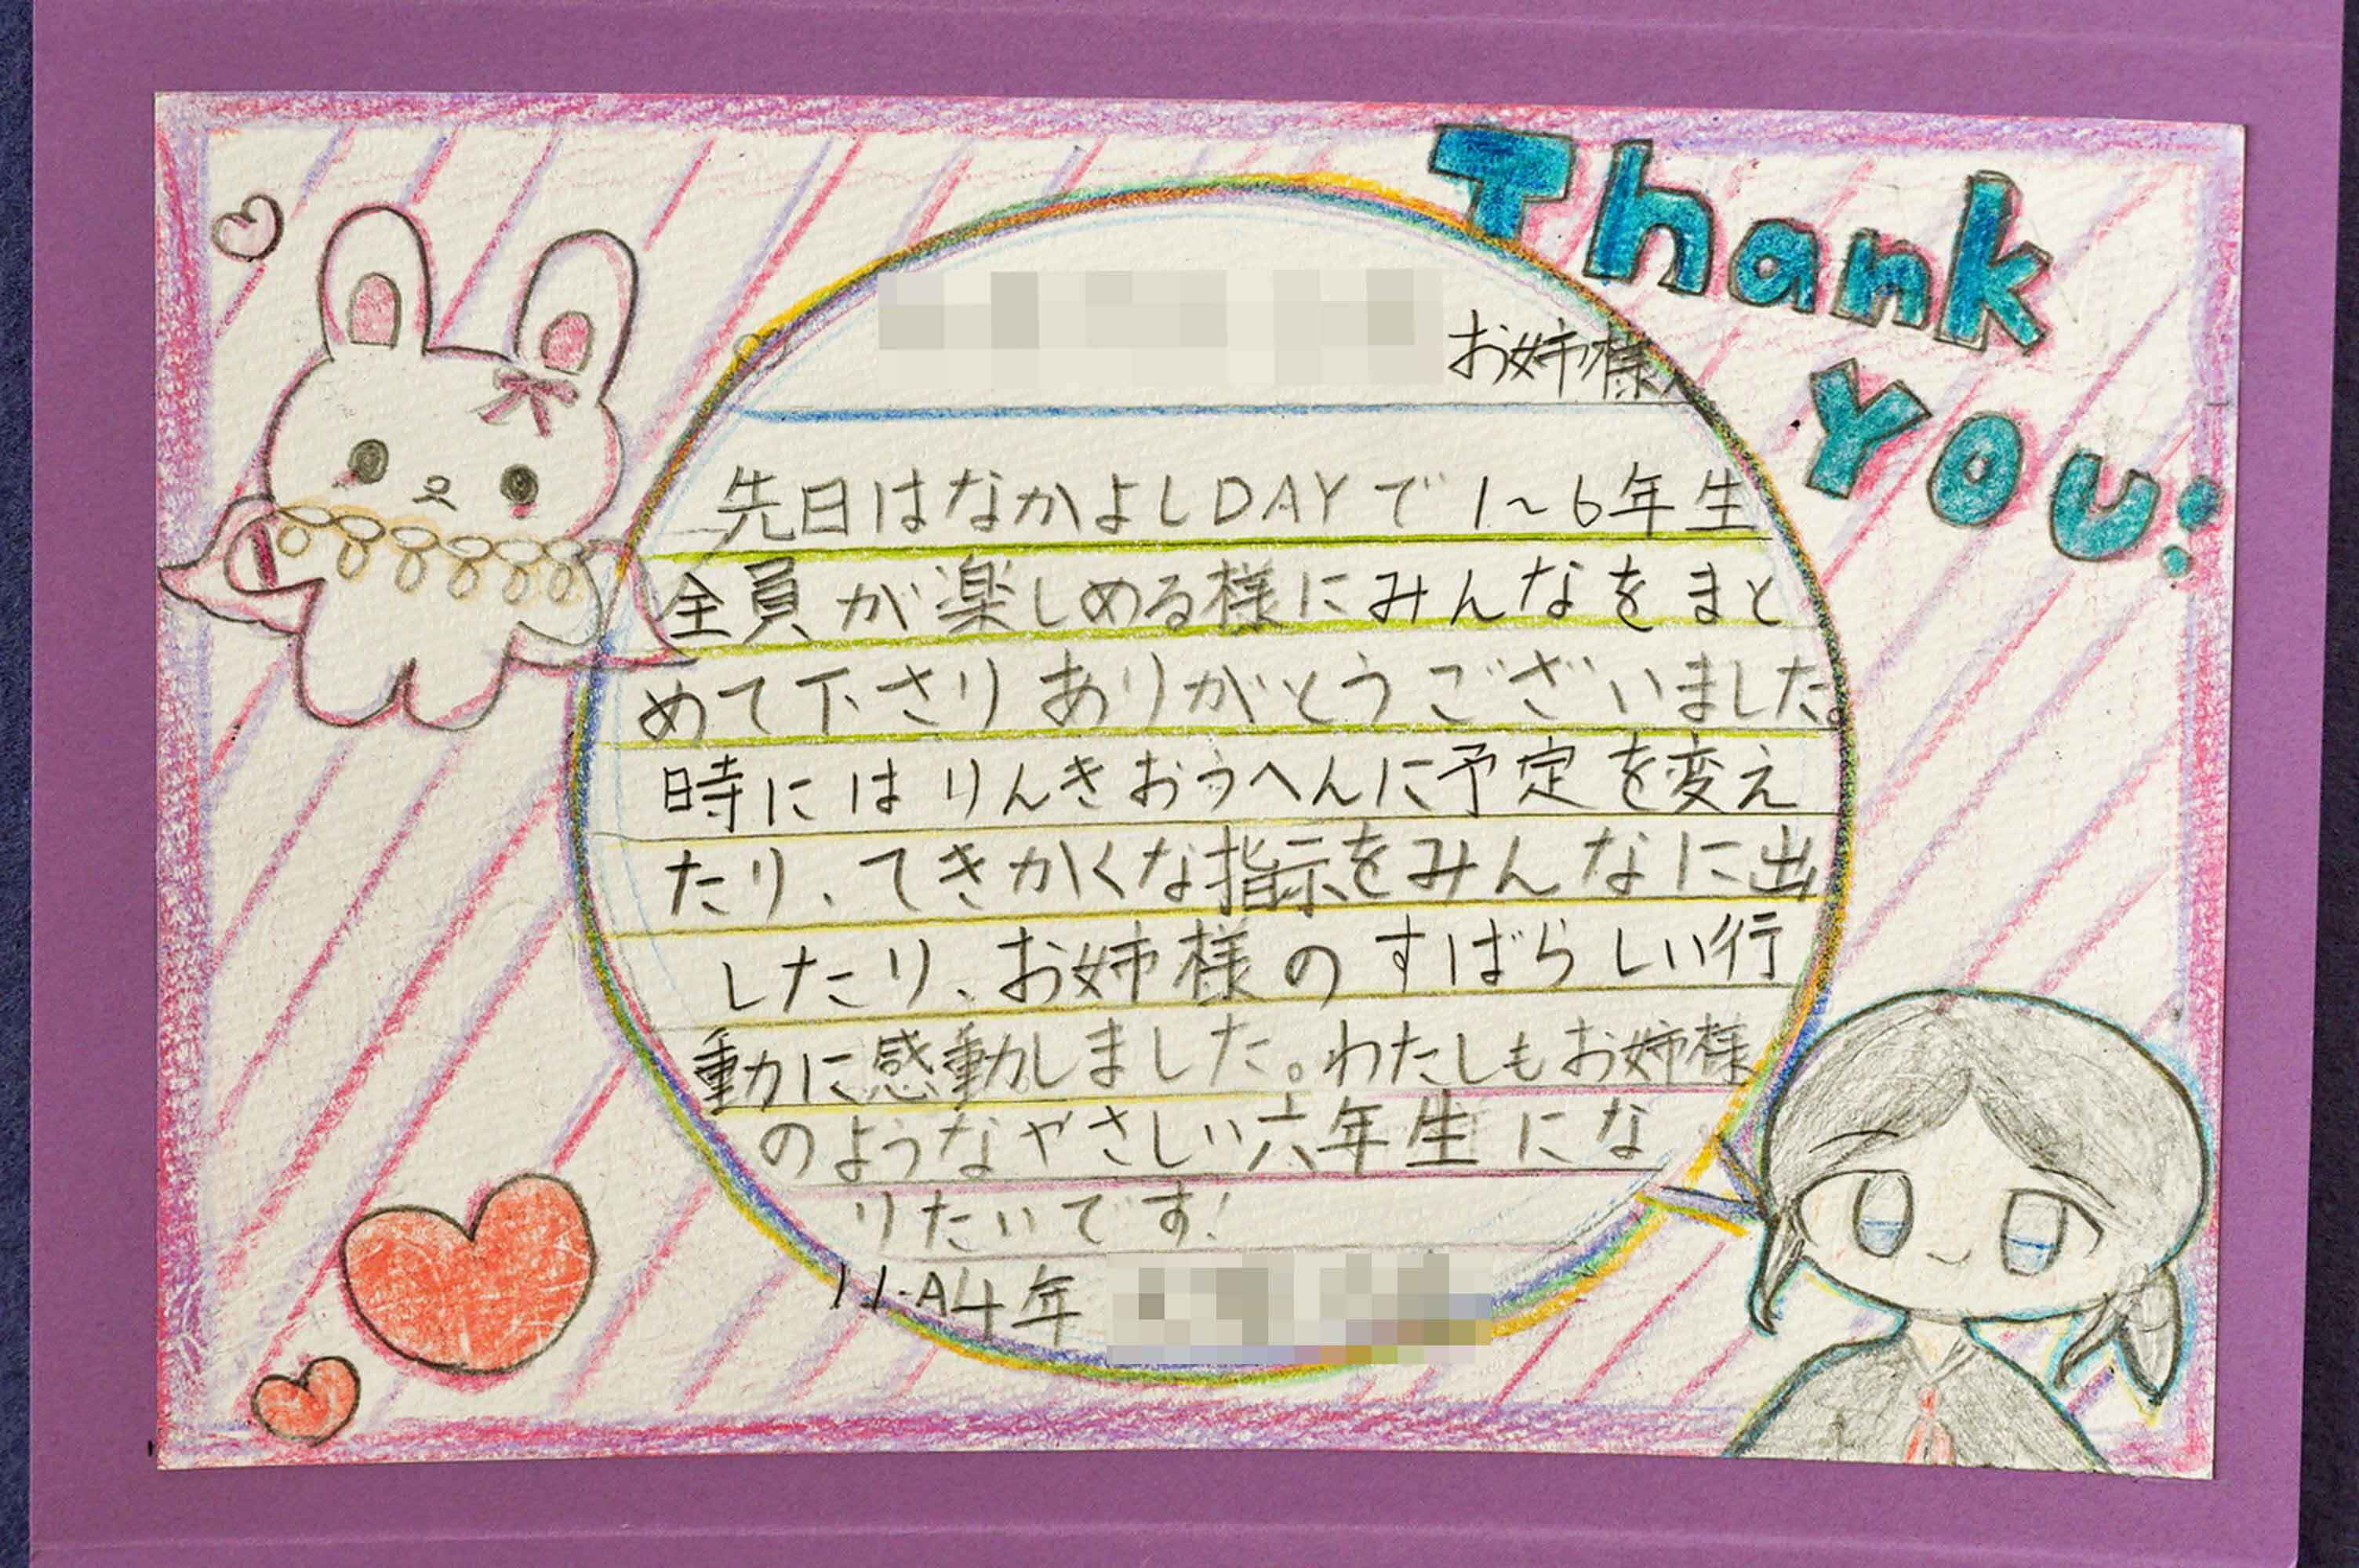 Thank
You!
お姉様へ
先日はなかよしDAYで1~6年生
全員が楽しめる様にみんなをまと
めて下さりありがとうございました。
時にはりんきおうへんに予定を変え
たり、てきかくな指示をみんなに出
したり、お姉様のすばらしい行
動に感動しました。わたしもお姉様
のようなやさしい六年生にな
りたいです!
11-A4年